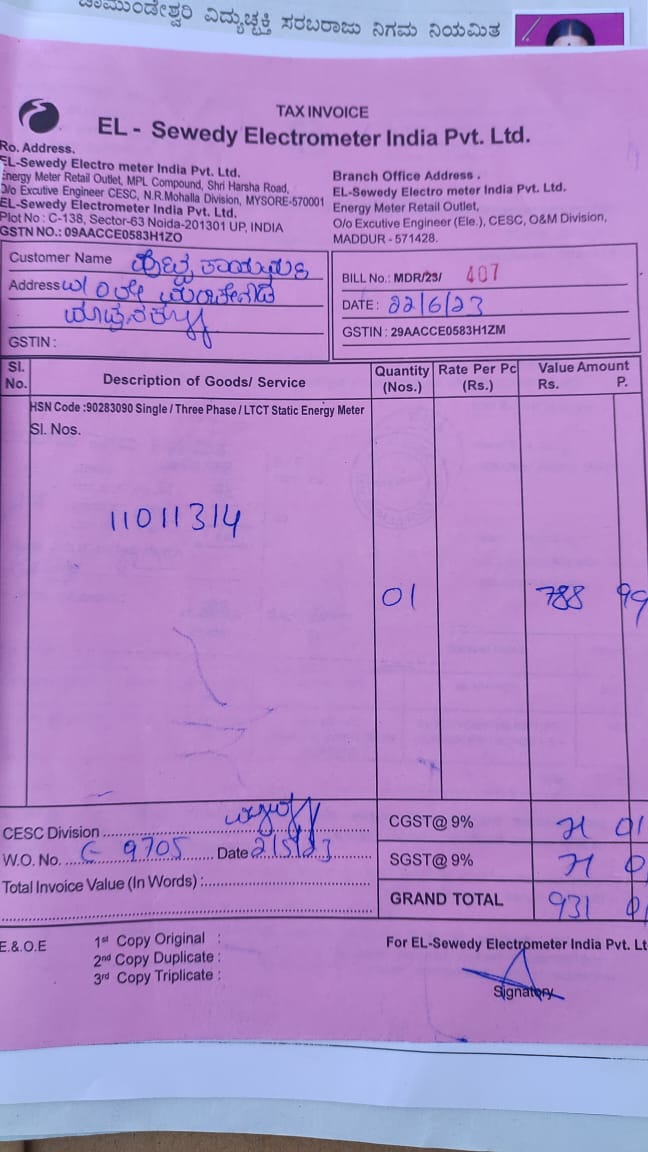 ಚಾಮುಂಡೇಶ್ವರಿ ವಿದ್ಯುಚ್ಛಕ್ತಿ ಸರಬರಾಜು ನಿಗಮ ನಿಯಮಿತ
TAX INVOICE
EL - Sewedy Electrometer India Pvt. Ltd.
Ro. Address.
EL-Sewedy Electro meter India Pvt. Ltd.
Energy Meter Retail Outlet, MPL Compound, Shri Harsha Road,
O/o Excutive Engineer CESC, N.R.Mohalla Division, MYSORE-570001
EL-Sewedy Electrometer India Pvt. Ltd.
Plot No : C-138, Sector-63 Noida-201301 UP, INDIA
GSTN NO.: 09AACCE0583H1ZO
Branch Office Address .
EL-Sewedy Electro meter India Pvt. Ltd.
Energy Meter Retail Outlet,
O/o Excutive Engineer (Ele.), CESC, O&M Division,
MADDUR - 571428.
Customer Name
Address
GSTIN :
BILL No.: MDR/23/ 407
DATE : 22/6/23
GSTIN : 29AACCE0583H1ZM
Sl. No. Description of Goods/ Service Quantity (Nos.) Rate Per Pc (Rs.) Value Amount Rs. P.
HSN Code :90283090 Single / Three Phase / LTCT Static Energy Meter
Sl. Nos.
11011314
01 788 99
CESC Division
W.O. No. 9705 Date 2/5/23
Total Invoice Value (In Words) :
CGST@ 9% 71 01
SGST@ 9% 71
GRAND TOTAL 931 01
E.& O.E
1st Copy Original :
2nd Copy Duplicate :
3rd Copy Triplicate :
For EL-Sewedy Electrometer India Pvt. Lt
Signatory